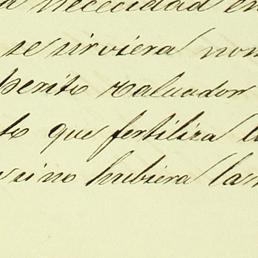 necesidad en
se sirviera nom
perito valuador
to que fertiliza la
sino hubiera la